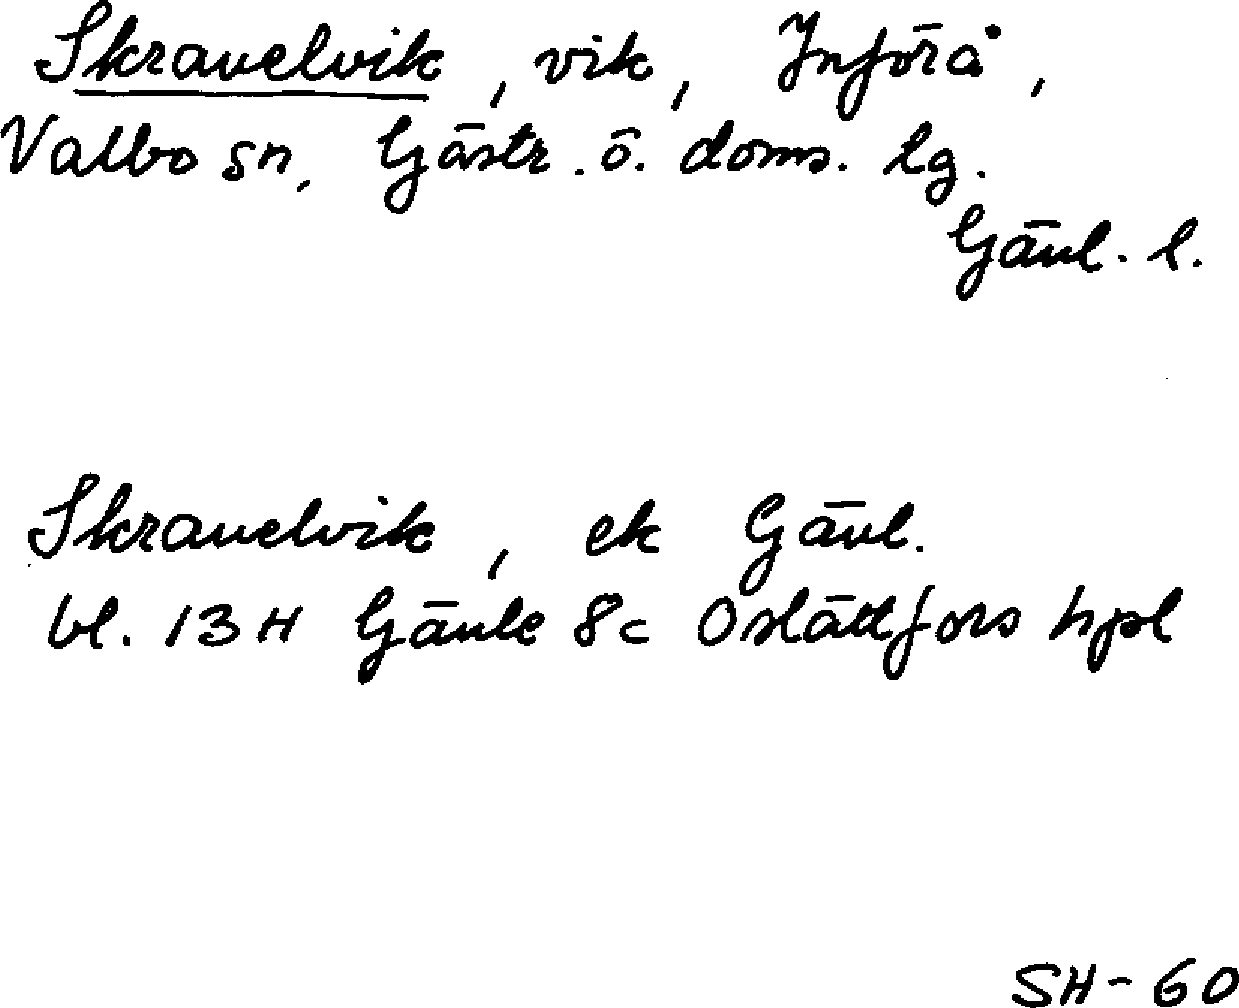 Skravelvik, vik, Införå,
Valbo sn, Gästr. ö. doms. lg.
Gävl. l.
Skravelvik, ek Gävl.
bl. 13H Gävle 8c Oslättfors hpl
SH-60